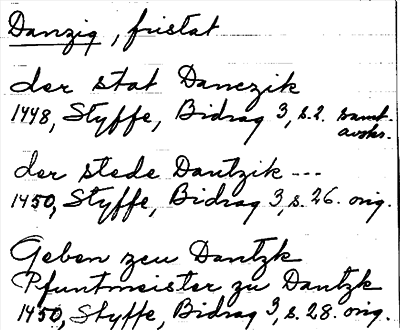 Danzig, fristat
der stat Danczik
1448, Styffe, Bidrag 3, s. 2. samt.
avskr.
der stede Dantzik ---
1450, Styffe, Bidrag 3, s. 26. orig.
Geben zeu Dantzk
Pfuntmeister zu Dantzk
1450, Styffe, Bidrag 3, s. 28. orig.